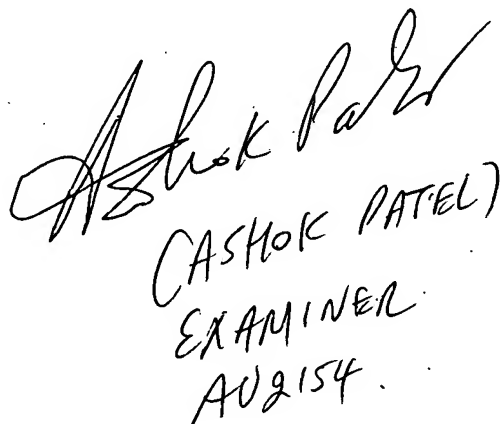 Ashok Patel
(ASHOK PATEL)
EXAMINER
AU2154.